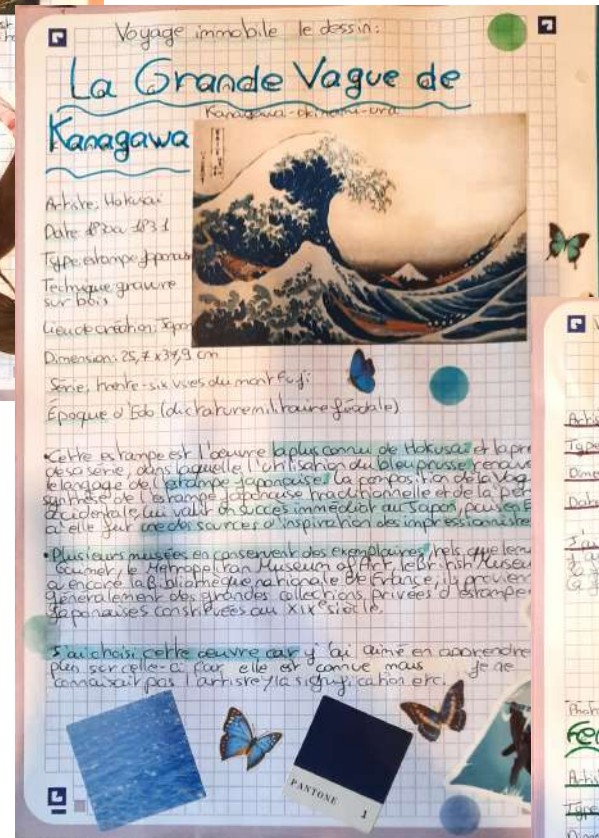 Voyage immobile le dessin:
La Grande Vague de
Kanagawa-oki-nami-ura
Kanagawa
Artiste: Hokusai
Date: 1830a 1831
Type: estampe Japonaise
Technique gravure
sur bois
Lieu de création: Japon
Dimension: 25,7 x 37,9 cm
Série, trente-six vues du mont Fuji
Époque d'Edo (dictature militaire féodale)
•Cette estampe est l'œuvre la plus connu de Hokusai et la pre
de sa série, dans laquelle l'utilisation du bleu prusse renouv
le langage de l'estampe Japonaise. La composition de la Vag
synthèse de l'estampe Japonaise traditionnelle et de la per
occidentale lui valut un succès immédiat au Japon, puis en E
où elle fut une des sources d'inspiration des impressionniste
•Plusieurs musées en conservent des exemplaires, tels que le mu
Guimet, le Metropolitan Museum of Art, le British Museu
ou encore la Bibliothèque nationale de France, ils provien
généralement des grandes collections, privées d'estampe
Japonaises constituées au XIXe siècle.
J'ai choisi cette œuvre car j'ai aimé en apprendre
plus sur celle-ci car elle est connue mais je ne
connaissait pas l'artiste / la signification etc.
PANTONE
1
Artis
Type
Dime
Date
J'ai
Photo
Artis
Type
Dime